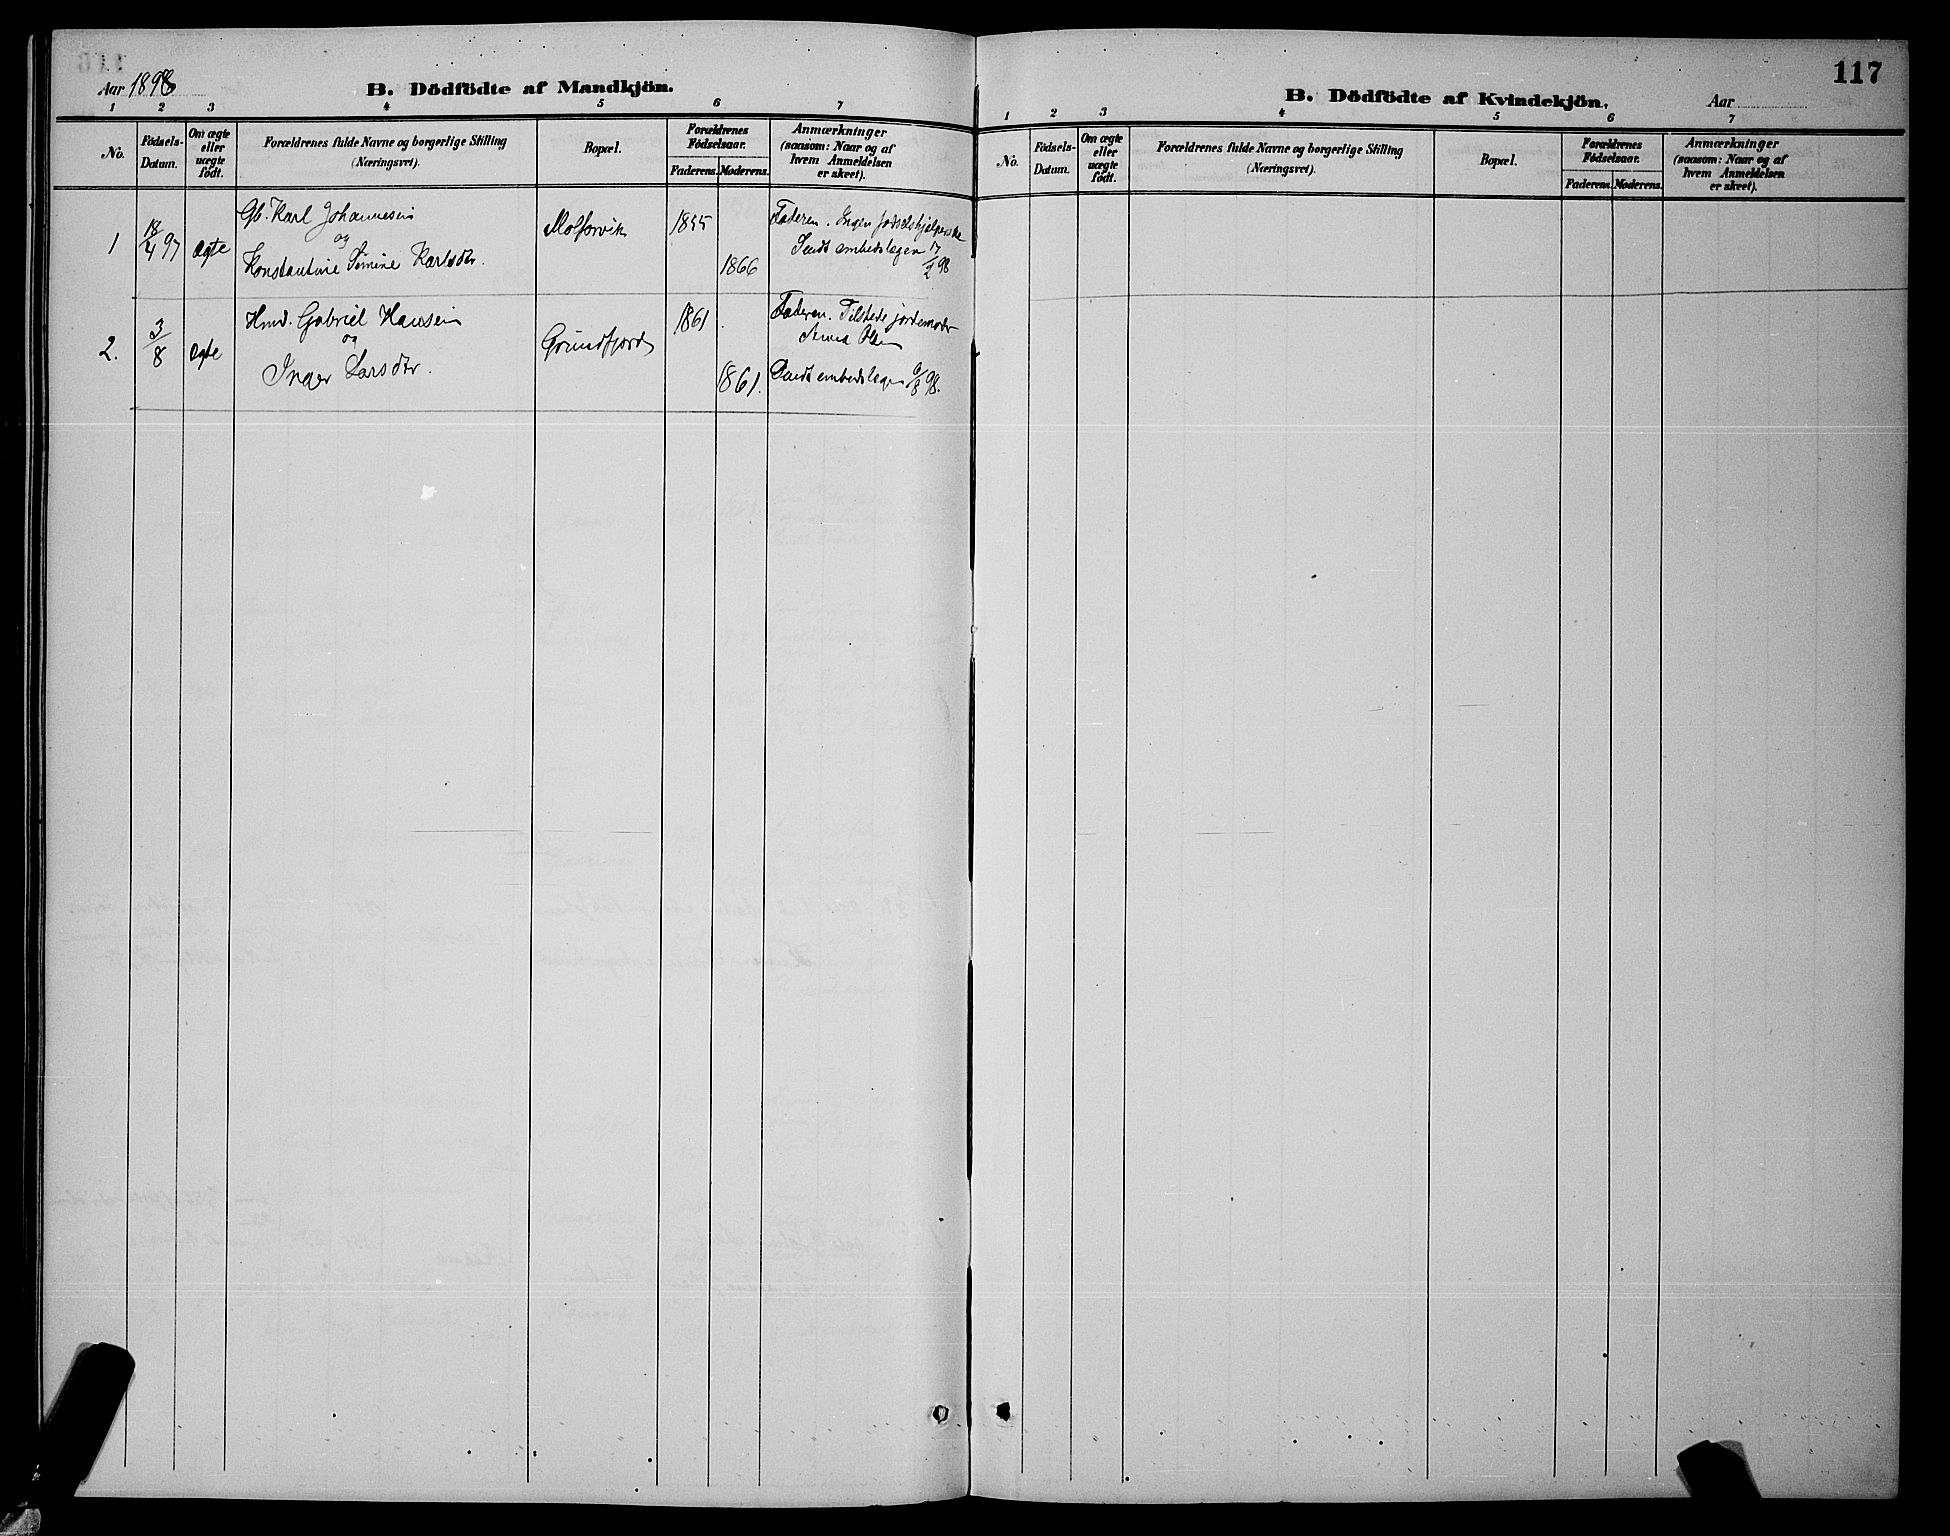 Aar 1898
B. Dödfödte af Mandkjön.
1 2 3 4 5 6 7
No. Födsels-Datum. Om ægte eller uægte födt. Forældrenes fulde Navne og borgerlige Stilling (Næringsvei). Bopæl. Forældrenes Födselsaar. Faderens. Moderens. Anmærkninger (saasom: Naar og af hvem Anmeldelsen er skeet).
1 18/4 97 ægte Gb. Karl Johannesen 1855 Faderen. Ingen fødselshjælperske
og
Konstantine Simine Karlsdtr. 1866 Sendt embedslægen 17/2 98
2. 3/8 ægte Hmd. Gabriel Hansen Grundfjord 1861 Faderen. Tilstede jordemoder
og Anna Olsen
Inger Larsdtr. 1861. Sendt embedslægen 6/8 98.
117
B. Dödfödte af Kvindekjön.
Aar
1 2 3 4 5 6 7
No. Födsels-Datum. Om ægte eller uægte födt. Forældrenes fulde Navne og borgerlige Stilling (Næringsvei). Bopæl. Forældrenes Födselsaar. Faderens. Moderens. Anmærkninger (saasom: Naar og af hvem Anmeldelsen er skeet).